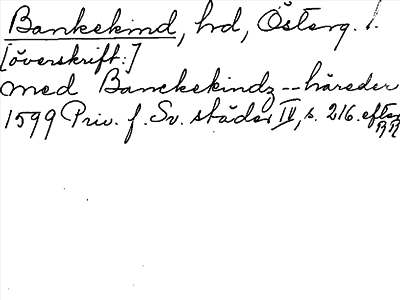 Bankekind, hd, Österg. l.
[överskrift:]
med Banckekindz -- häreder
1599 Priv. f. Sv. städer IV, s. 216. efter
RR